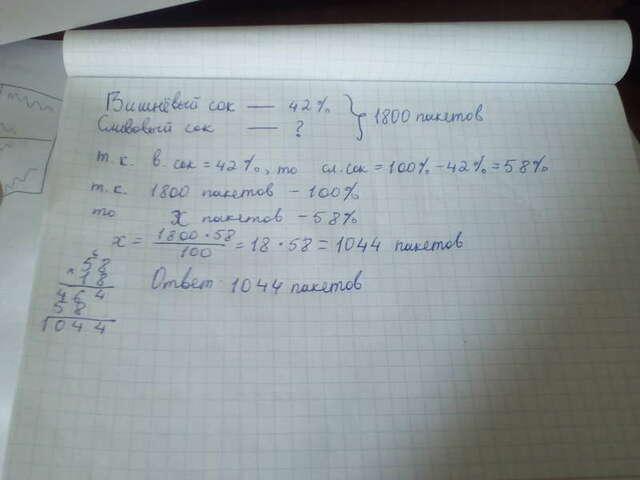 Вишнёвый сок — 42% } 1800 пакетов
Сливовый сок — ?
т. к. в. сок = 42%, то сл. сок = 100% - 42% = 58%
т. к. 1800 пакетов - 100%
то x пакетов - 58%
x = 1800 · 58 / 100 = 18 · 58 = 1044 пакетов
6
58
× 18
464
58
1044
Ответ: 1044 пакетов